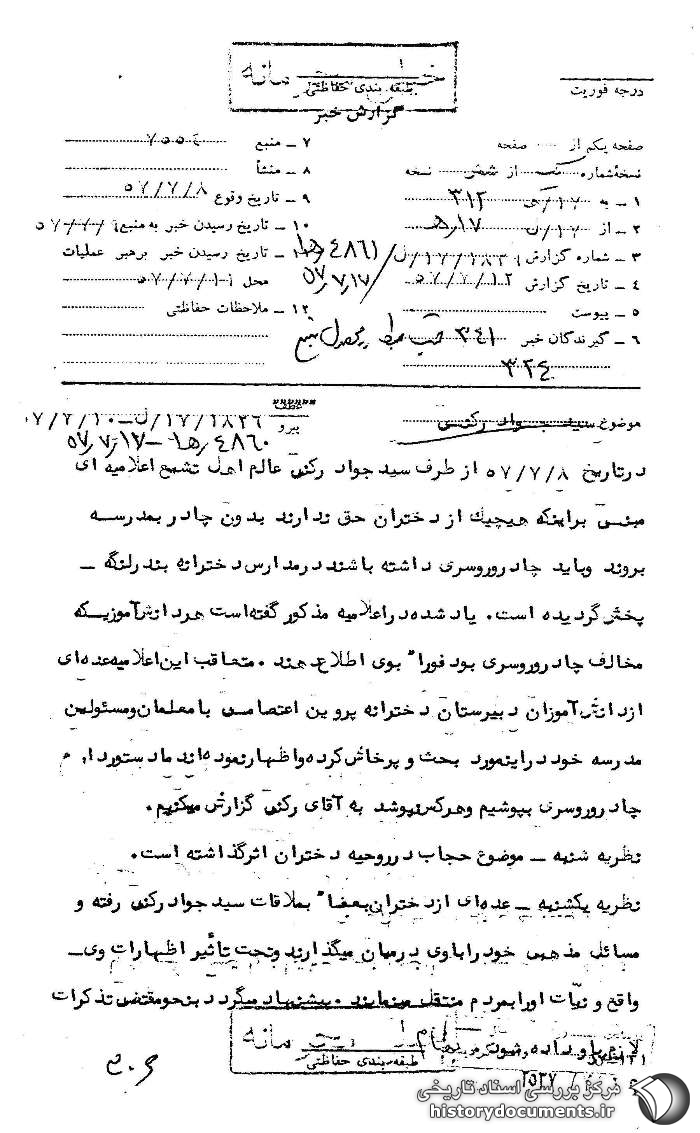 طبقه بندی حفاظتی
گزارش خبر
درجه فوریت
صفحه یکم از ..... صفحه
نسخه شماره یک از شش نسخه
۱ – به ۳۱۲
۲ – از ۱۷/هـ
۳ – شماره گزارش ۱۷/۱۸۳
۴ – تاریخ گزارش ۵۷/۷/۱۲
۵ – پیوست
۶ – گیرندگان خبر ۳۴۱
۳۲۴
۷ – منبع ۷۵۵۴
۸ – منشأ
۹ – تاریخ وقوع ۵۷/۷/۸
۱۰ – تاریخ رسیدن خبر به منبع ۵۷/۷/۹
۱۱ – تاریخ رسیدن خبر برهبر عملیات
محل ۵۷/۷/۱۱
۱۲ – ملاحظات حفاظتی
۴۸۶۱/هـ
۵۷/۷/۱۷
موضوع سید جواد رکنی
عطف
پیرو ۱۷/۱۸۳۶/ل – ۷/۲/۱۰
۴۸۶۰/هـ – ۵۷/۷/۱۷
درتاریخ ۵۷/۷/۸ از طرف سید جواد رکنی عالم اهل تشیع اعلامیه ای
مبنی براینکه هیچیک از دختران حق ندارند بدون چادر بمدرسه
بروند وباید چادروروسری داشته باشند درمدارس دخترانه بندرلنگه –
پخش گردیده است. یاد شده دراعلامیه مذکور گفته است هردانش آموزیکه
مخالف چادروروسری بود فورا" بوی اطلاع دهند. متعاقب این اعلامیه عده ای
ازدانش آموزان دبیرستان دخترانه پروین اعتصامی با معلمان ومسئولین
مدرسه خود دراینمورد بحث و پرخاش کرده واظهارنموده اند ما دستورداریم
چادروروسری بپوشیم وهرکس نپوشد به آقای رکنی گزارش میکنیم.
نظریه شنبه – موضوع حجاب درروحیه دختران اثرگذاشته است.
نظریه یکشنبه – عده ای ازدختران بعضا" بملاقات سید جواد رکنی رفته و
مسائل مذهبی خودراباوی درمیان میگذارند وتحت تأثیر اظهارات وی –
واقع و نیات اورابمردم منتقل مینمایند. پیشنهاد میگردد بنحومقتضی تذکرات
لازم باو داده شود.
طبقه بندی حفاظتی
۲۵۳۷
مرکز بررسی اسناد تاریخی
historydocuments.ir